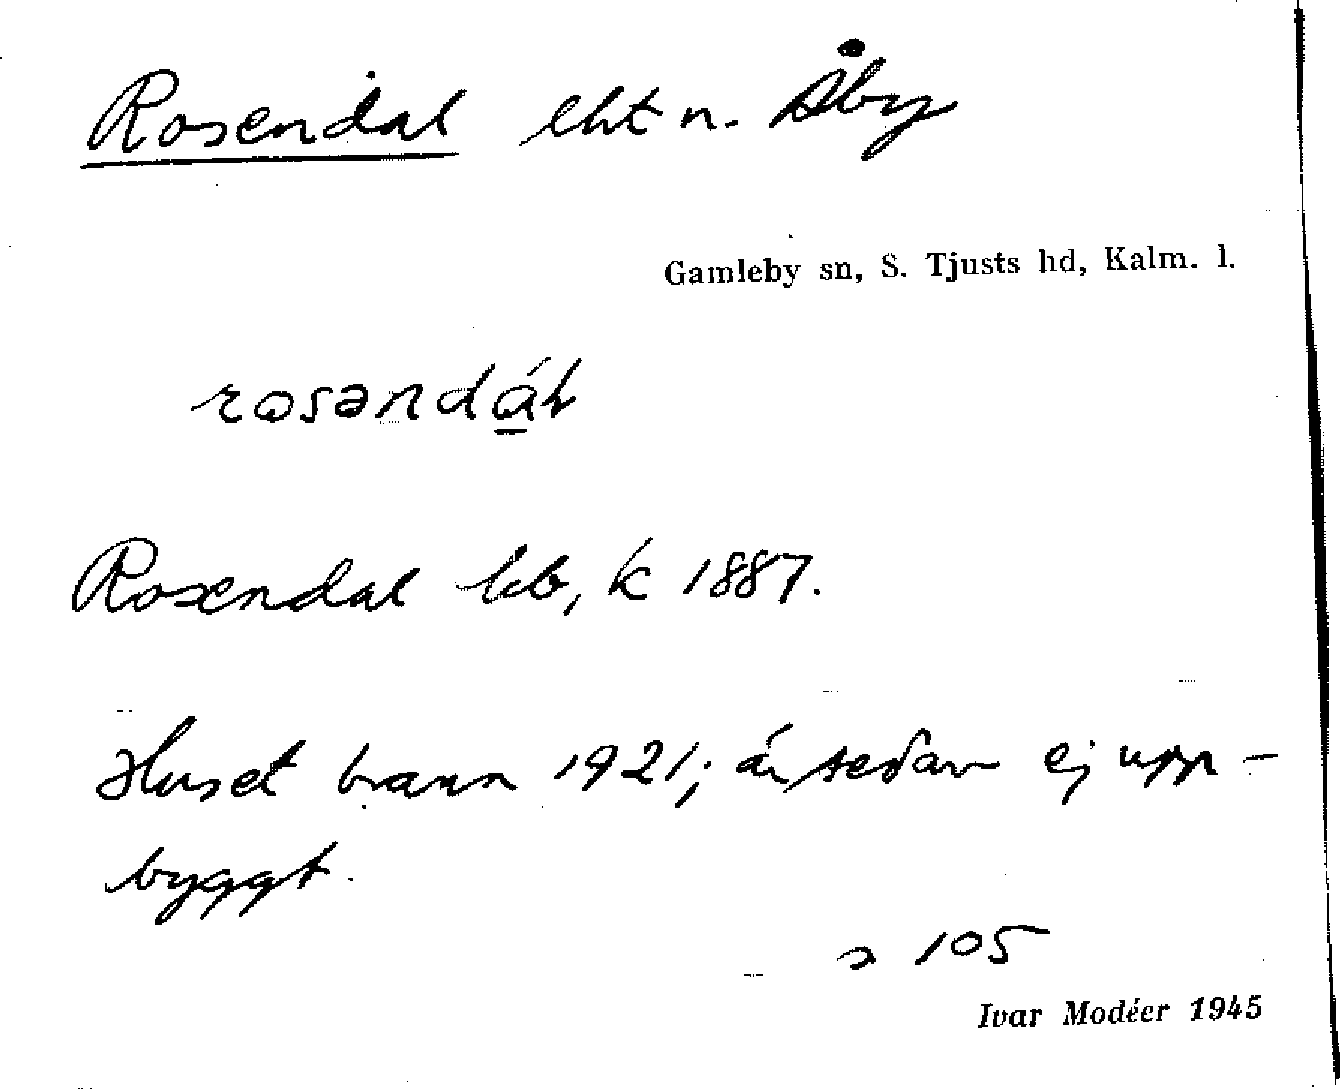 Rosendal lht n. Åby
Gamleby sn, S. Tjusts hd, Kalm. l.
rosəndál
Rosendal lub, k 1887.
Huset brann 1921; är sedan ej upp-
byggt.
s 105
Ivar Modéer 1945